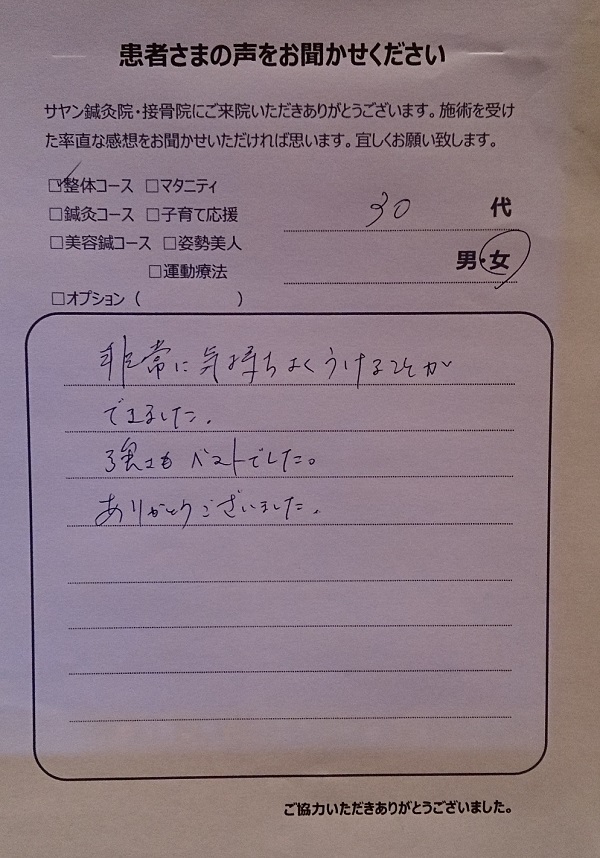 患者さまの声をお聞かせください
サヤン鍼灸院・接骨院にご来院いただきありがとうございます。施術を受け
た率直な感想をお聞かせいただければ思います。宜しくお願い致します。
☑整体コース □マタニティ
□鍼灸コース □子育て応援
30 代
□美容鍼コース □姿勢美人
男・女
□運動療法
□オプション（ ）
非常に気持ちよくうけることが
できました。
強さもベストでした。
ありがとうございました。
ご協力いただきありがとうございました。